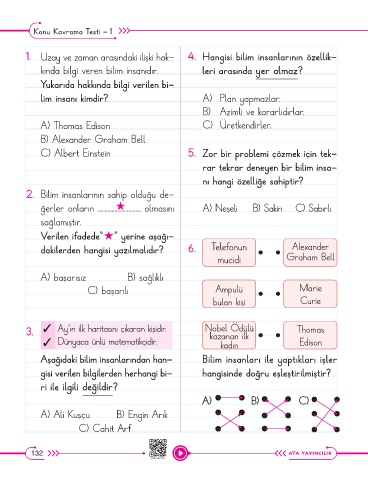 Konu Kavrama Testi – 1
1. Uzay ve zaman arasındaki ilişki hak-
kında bilgi veren bilim insanıdır.
Yukarıda hakkında bilgi verilen bi-
lim insanı kimdir?
A) Thomas Edison
B) Alexander Graham Bell
C) Albert Einstein
2. Bilim insanlarının sahip olduğu de-
ğerler onların ........★........ olmasını
sağlamıştır.
Verilen ifadede "★" yerine aşağı-
dakilerden hangisi yazılmalıdır?
A) başarısız B) sağlıklı
C) başarılı
3. ✓ Ay'ın ilk haritasını çıkaran kişidir.
✓ Dünyaca ünlü matematikçidir.
Aşağıdaki bilim insanlarından han-
gisi verilen bilgilerden herhangi bi-
ri ile ilgili değildir?
A) Ali Kuşçu B) Engin Arık
C) Cahit Arf
4. Hangisi bilim insanlarının özellik-
leri arasında yer almaz?
A) Plan yapmazlar.
B) Azimli ve kararlıdırlar.
C) Üretkendirler.
5. Zor bir problemi çözmek için tek-
rar tekrar deneyen bir bilim insa-
nı hangi özelliğe sahiptir?
A) Neşeli B) Sakin C) Sabırlı
6. Telefonun
mucidi
Alexander
Graham Bell
Ampulü
bulan kişi
Marie
Curie
Nobel Ödülü
kazanan ilk
kadın
Thomas
Edison
Bilim insanları ile yaptıkları işler
hangisinde doğru eşleştirilmiştir?
A) B) C)
132
ATA YAYINCILIK